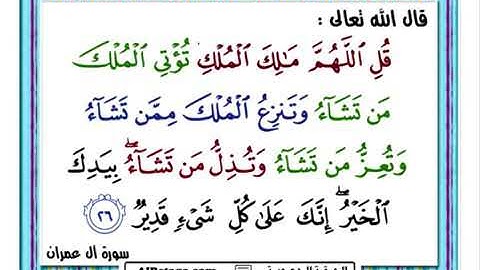 قال الله تعالى :
قُلِ ٱللَّهُمَّ مَٰلِكَ ٱلْمُلْكِ تُؤْتِى ٱلْمُلْكَ
مَن تَشَآءُ وَتَنزِعُ ٱلْمُلْكَ مِمَّن تَشَآءُ
وَتُعِزُّ مَن تَشَآءُ وَتُذِلُّ مَن تَشَآءُ ۖ بِيَدِكَ
ٱلْخَيْرُ ۖ إِنَّكَ عَلَىٰ كُلِّ شَىْءٍ قَدِيرٌ ٢٦
سورة ال عمران